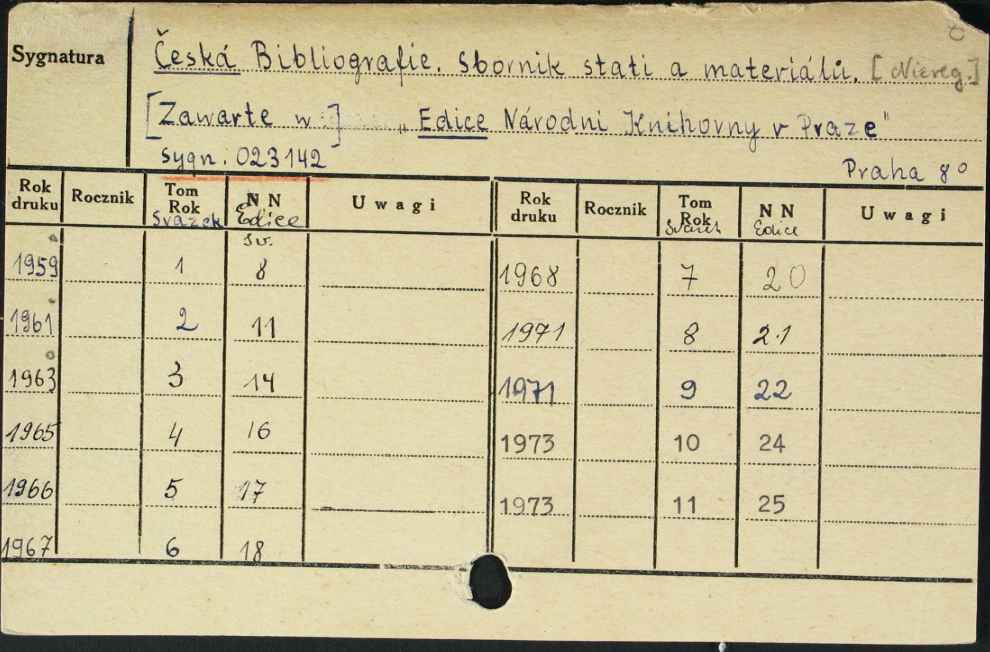 Sygnatura
Česká Bibliografie. Sborník statí a materiálů. [Niereg.]
[Zawarte w] „Edice Národní Knihovny v Praze"
sygn. 023142
Praha 8°
Rok druku Rocznik Tom Rok Svazek NN Edice sv. Uwagi Rok druku Rocznik Tom Rok Svazek NN Edice Uwagi
1959 1 8 1968 7 20
1961 2 11 1971 8 21
1963 3 14 1971 9 22
1965 4 16 1973 10 24
1966 5 17 1973 11 25
1967 6 18